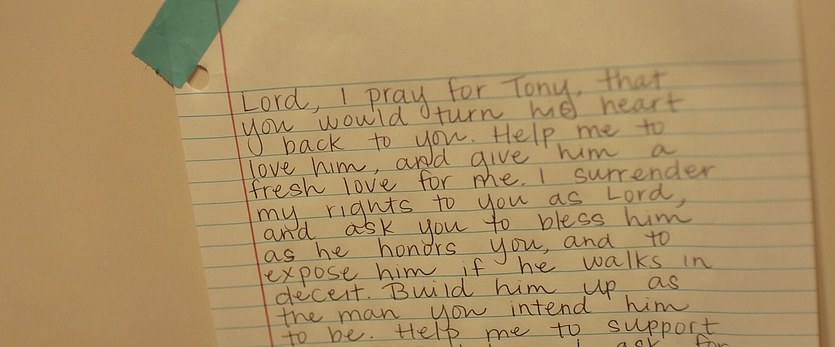 Lord, I pray for Tony, that
you would turn his heart
back to you. Help me to
love him, and give him a
fresh love for me. I surrender
my rights to you as Lord,
and ask you to bless him
as he honors you, and to
expose him if he walks in
deceit. Build him up as
the man you intend him
to be. Help me to support
I ask for